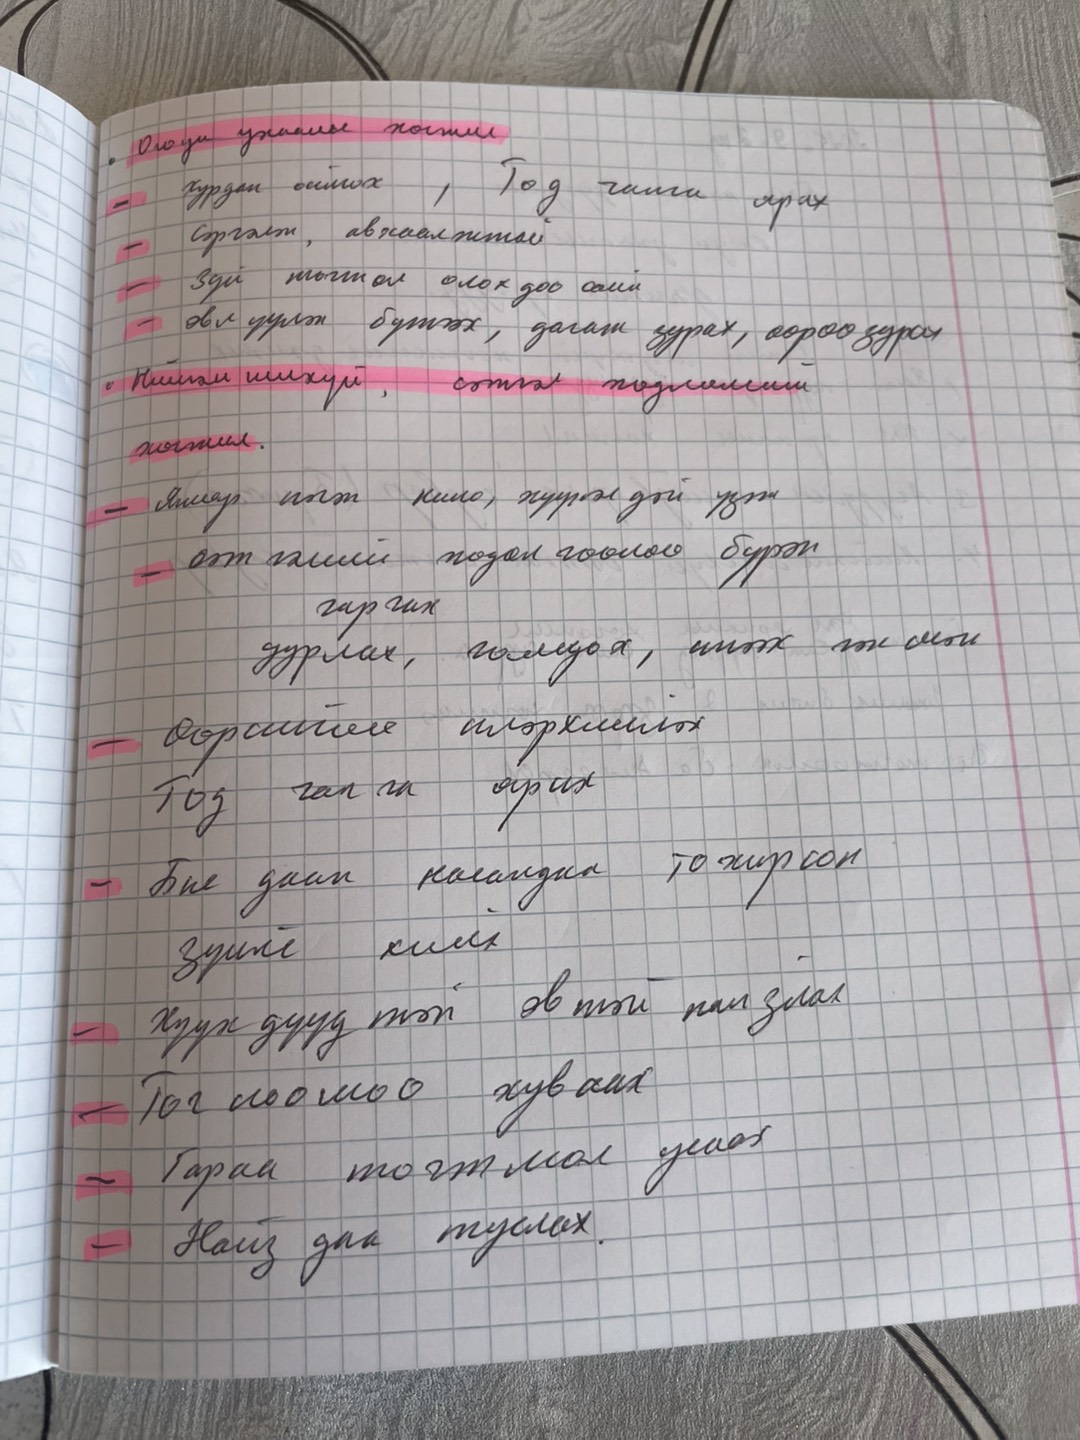 • Оюун ухааны хөгжил
- Хурдан ойлгох, Тод чанга ярах
- Сэргэлэн, авхаалжтай
- Зүй тогтол олохдоо сайн
- Эвлүүлж бүтээх, дагаж зурах, өөрөө зурах
• Нийгэмшихүй, сэтгэл хөдлөлийн
хөгжил.
- Ямар нэгэн, хүүхэлдэй үзэж
- Сэтгэлийн хөдөлгөөнөө бүрэн
гаргах
дурлах, гомдох, инээх гэх мэт
- Өөрийгөө илэрхийлэх
Тод чанга ярих
- Бие даан насандаа тохирсон
зүйлс хийх
- Хүүхдүүдтэй эвтэй найзлах
- Тоглоомоо хуваах
- Гараа тогтмол угаах
- Найздаа туслах.